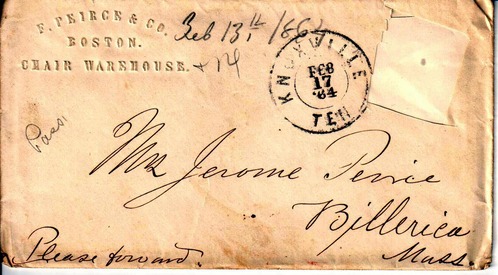 F. PEIRCE & CO.
BOSTON.
CHAIR WAREHOUSE.
Feb 13th /864
+ 14
KNOXVILLE
FEB
17
'64
TEN
Mr Jerome Peirce
Billerica
Mass.
Please forward.